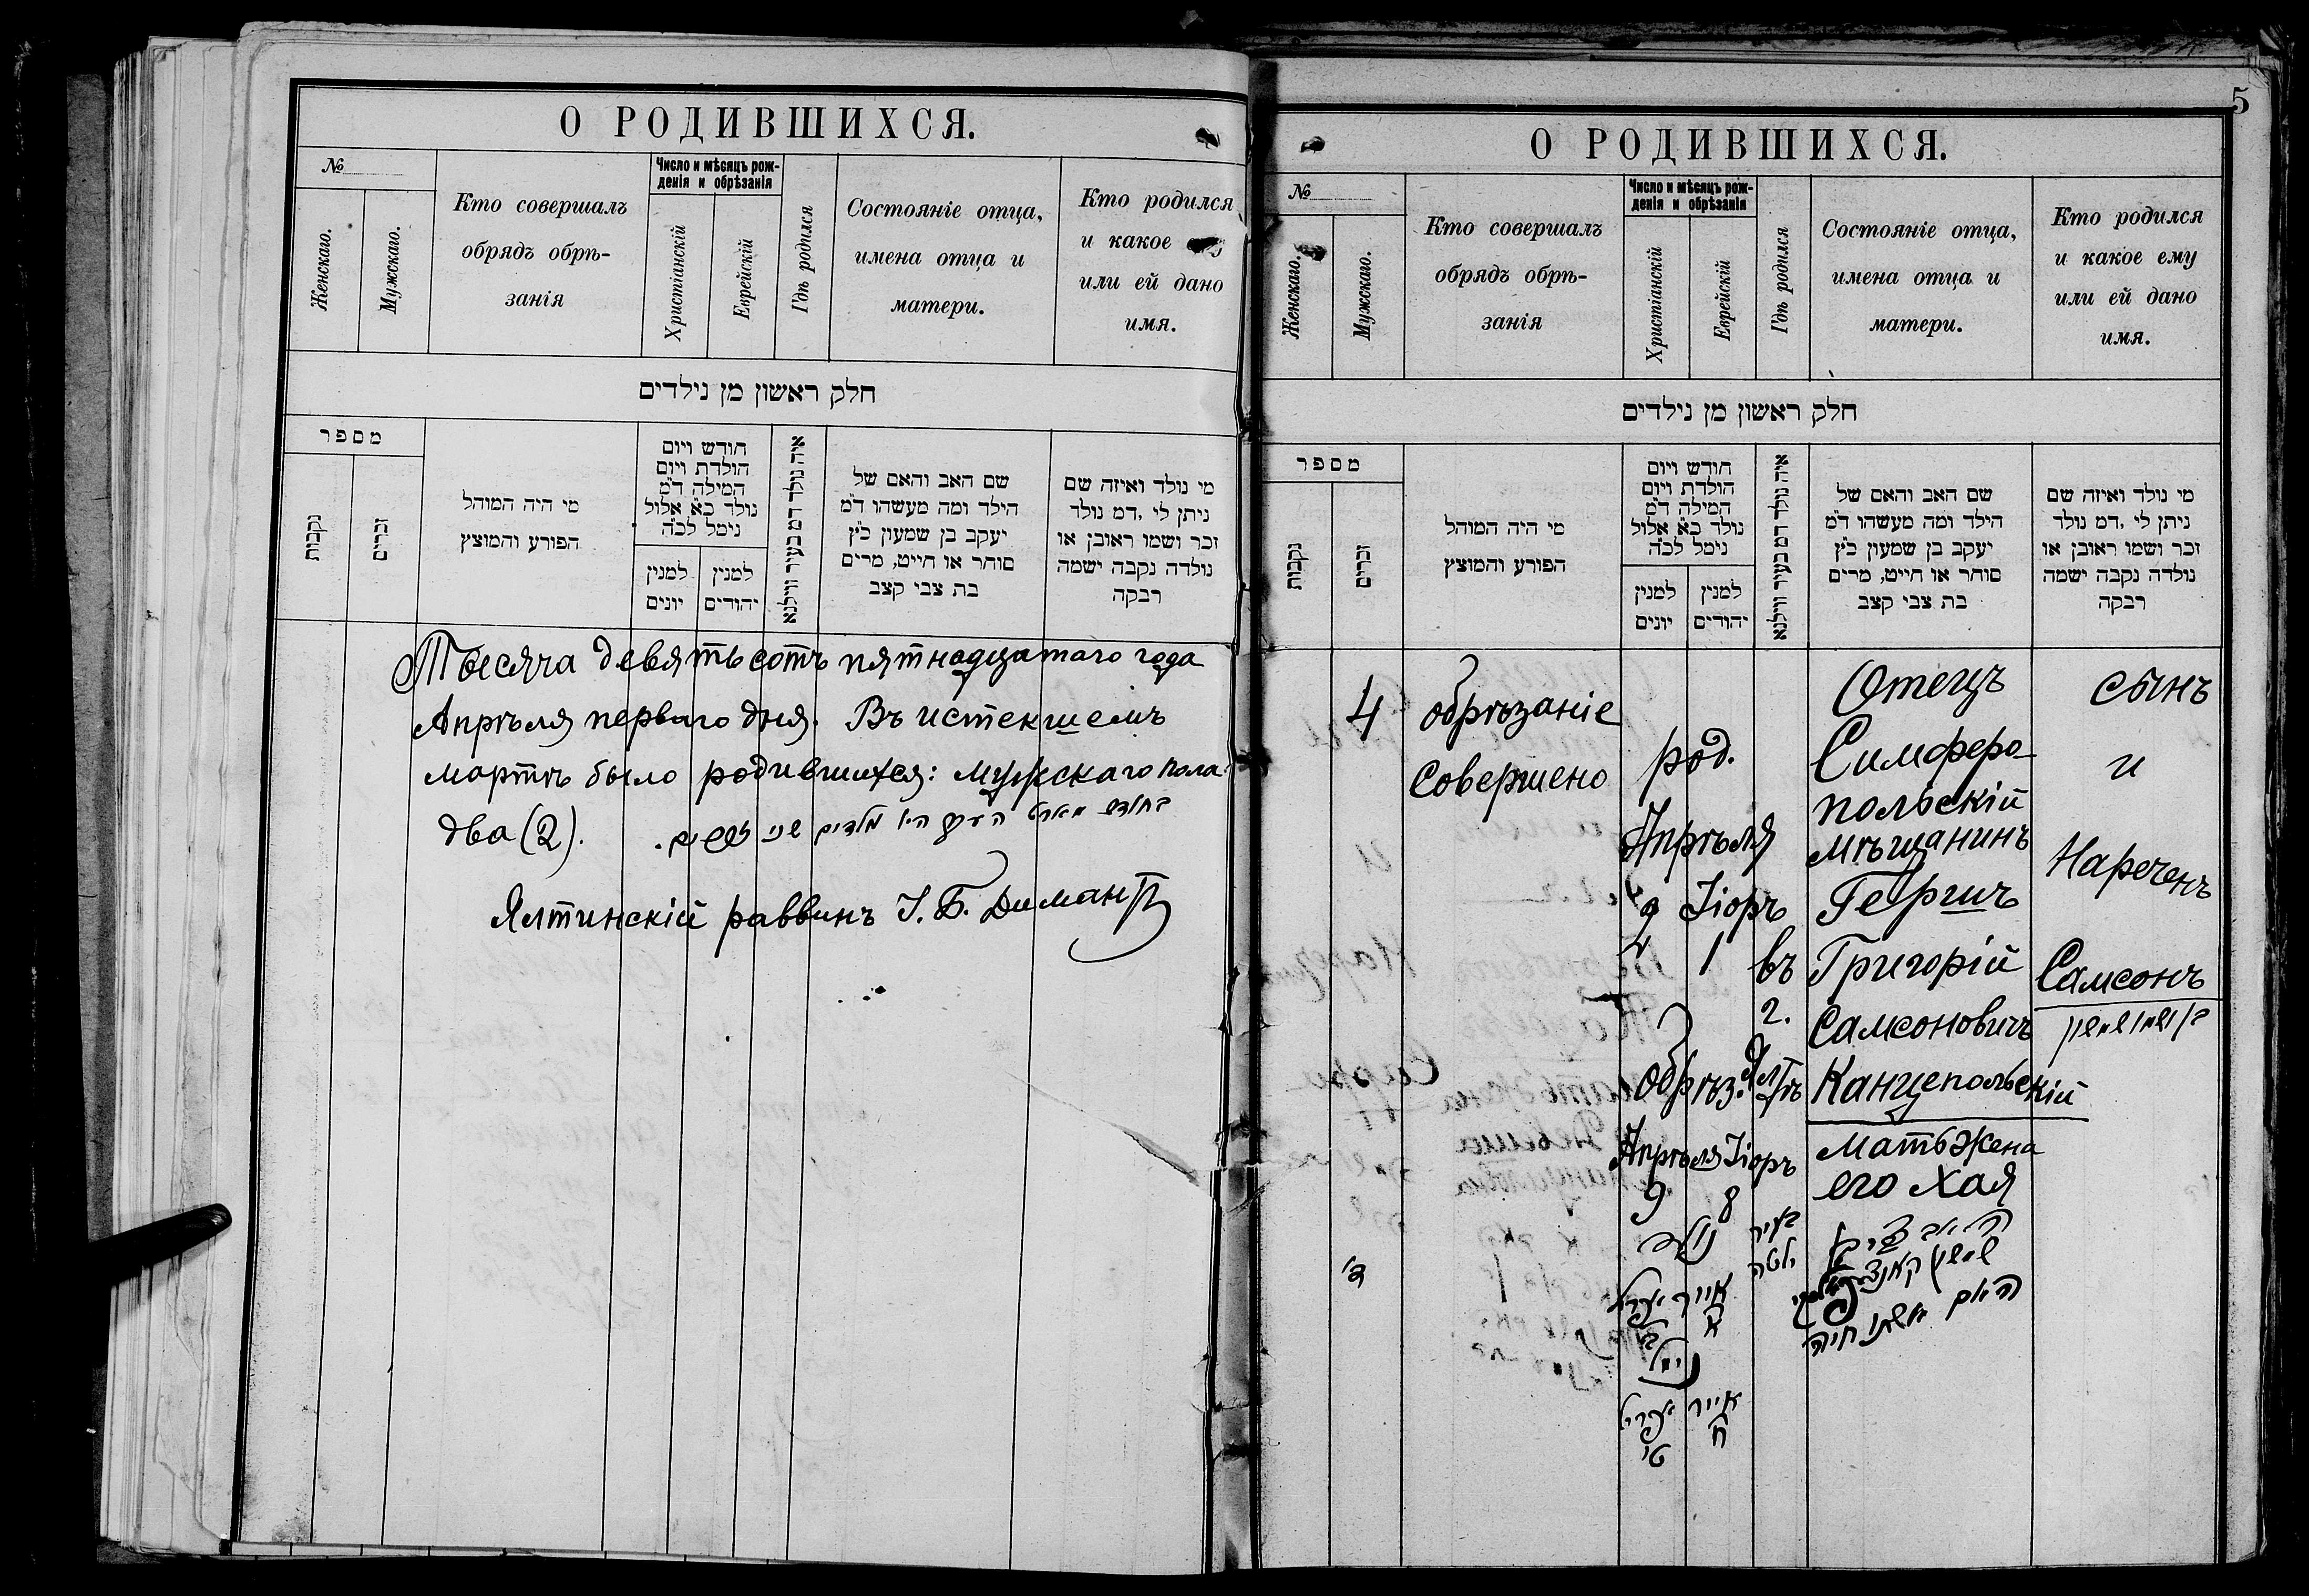 О РОДИВШИХСЯ.
№
Женскаго.
Мужскаго.
Кто совершалъ
обрядъ обрѣ-
занія
Число и мѣсяцъ рож-
денія и обрѣзанія
Христіанскій
Еврейскій
Гдѣ родился
Состояніе отца,
имена отца и
матери.
Кто родился
и какое
или ей дано
имя.
חלק ראשון מן נילדים
מספר
נקבות
זכרים
מי היה המוהל
הפורע והמוצץ
חודש ויום
הולדת ויום
המילה ד״מ
נולד כ״א אלול
נימל לכ״ה
למנין
יונים
למנין
יהודים
איה נולד דמ בעיר ווילנא
שם האב והאם של
הילד ומה מעשהו ד״מ
יעקב בן שמעון כ״ץ
סוחר או חייט, מרים
בת צבי קצב
מי נולד ואיזה שם
ניתן לי, דמ נולד
זכר ושמו ראובן או
נולדה נקבה ישמה
רבקה
Тысяча девятьсотъ пятнадцатаго года
Апрѣля перваго дня. Въ истекшемъ
мартѣ было родившихся: мужскаго пола
два (2).
Ялтинскій раввинъ І. Б. Димантъ
5
О РОДИВШИХСЯ.
№
Женскаго.
Мужскаго.
Кто совершалъ
обрядъ обрѣ-
занія
Число и мѣсяцъ рож-
денія и обрѣзанія
Христіанскій
Еврейскій
Гдѣ родился
Состояніе отца,
имена отца и
матери.
Кто родился
и какое ему
или ей дано
имя.
חלק ראשון מן נילדים
מספר
נקבות
זכרים
מי היה המוהל
הפורע והמוצץ
חודש ויום
הולדת ויום
המילה ד״מ
נולד כ״א אלול
נימל לכ״ה
למנין
יונים
למנין
יהודים
איה נולד דמ בעיר ווילנא
שם האב והאם של
הילד ומה מעשהו ד״מ
יעקב בן שמעון כ״ץ
סוחר או חייט, מרים
בת צבי קצב
מי נולד ואיזה שם
ניתן לי, דמ נולד
זכר ושמו ראובן או
נולדה נקבה ישמה
רבקה
4
обрѣзаніе
совершено
род.
Апрѣля
2 Іюръ
1
обрѣз.
Апрѣля Іюръ
9 8
נולד
אפריל אייר
ב׳ א
נימל
אפריל אייר
ט׳ ח
въ
г.
Ялтѣ
בעיר
ילטה
Отецъ
Симферо-
польскій
мѣщанинъ
Григорій
Самсоновичъ
Канцепольскій
мать жена
его Хая
האם אשתו חיה
сынъ
и
Нареченъ
Самсонъ
בן ושמו שמשון
ד׳